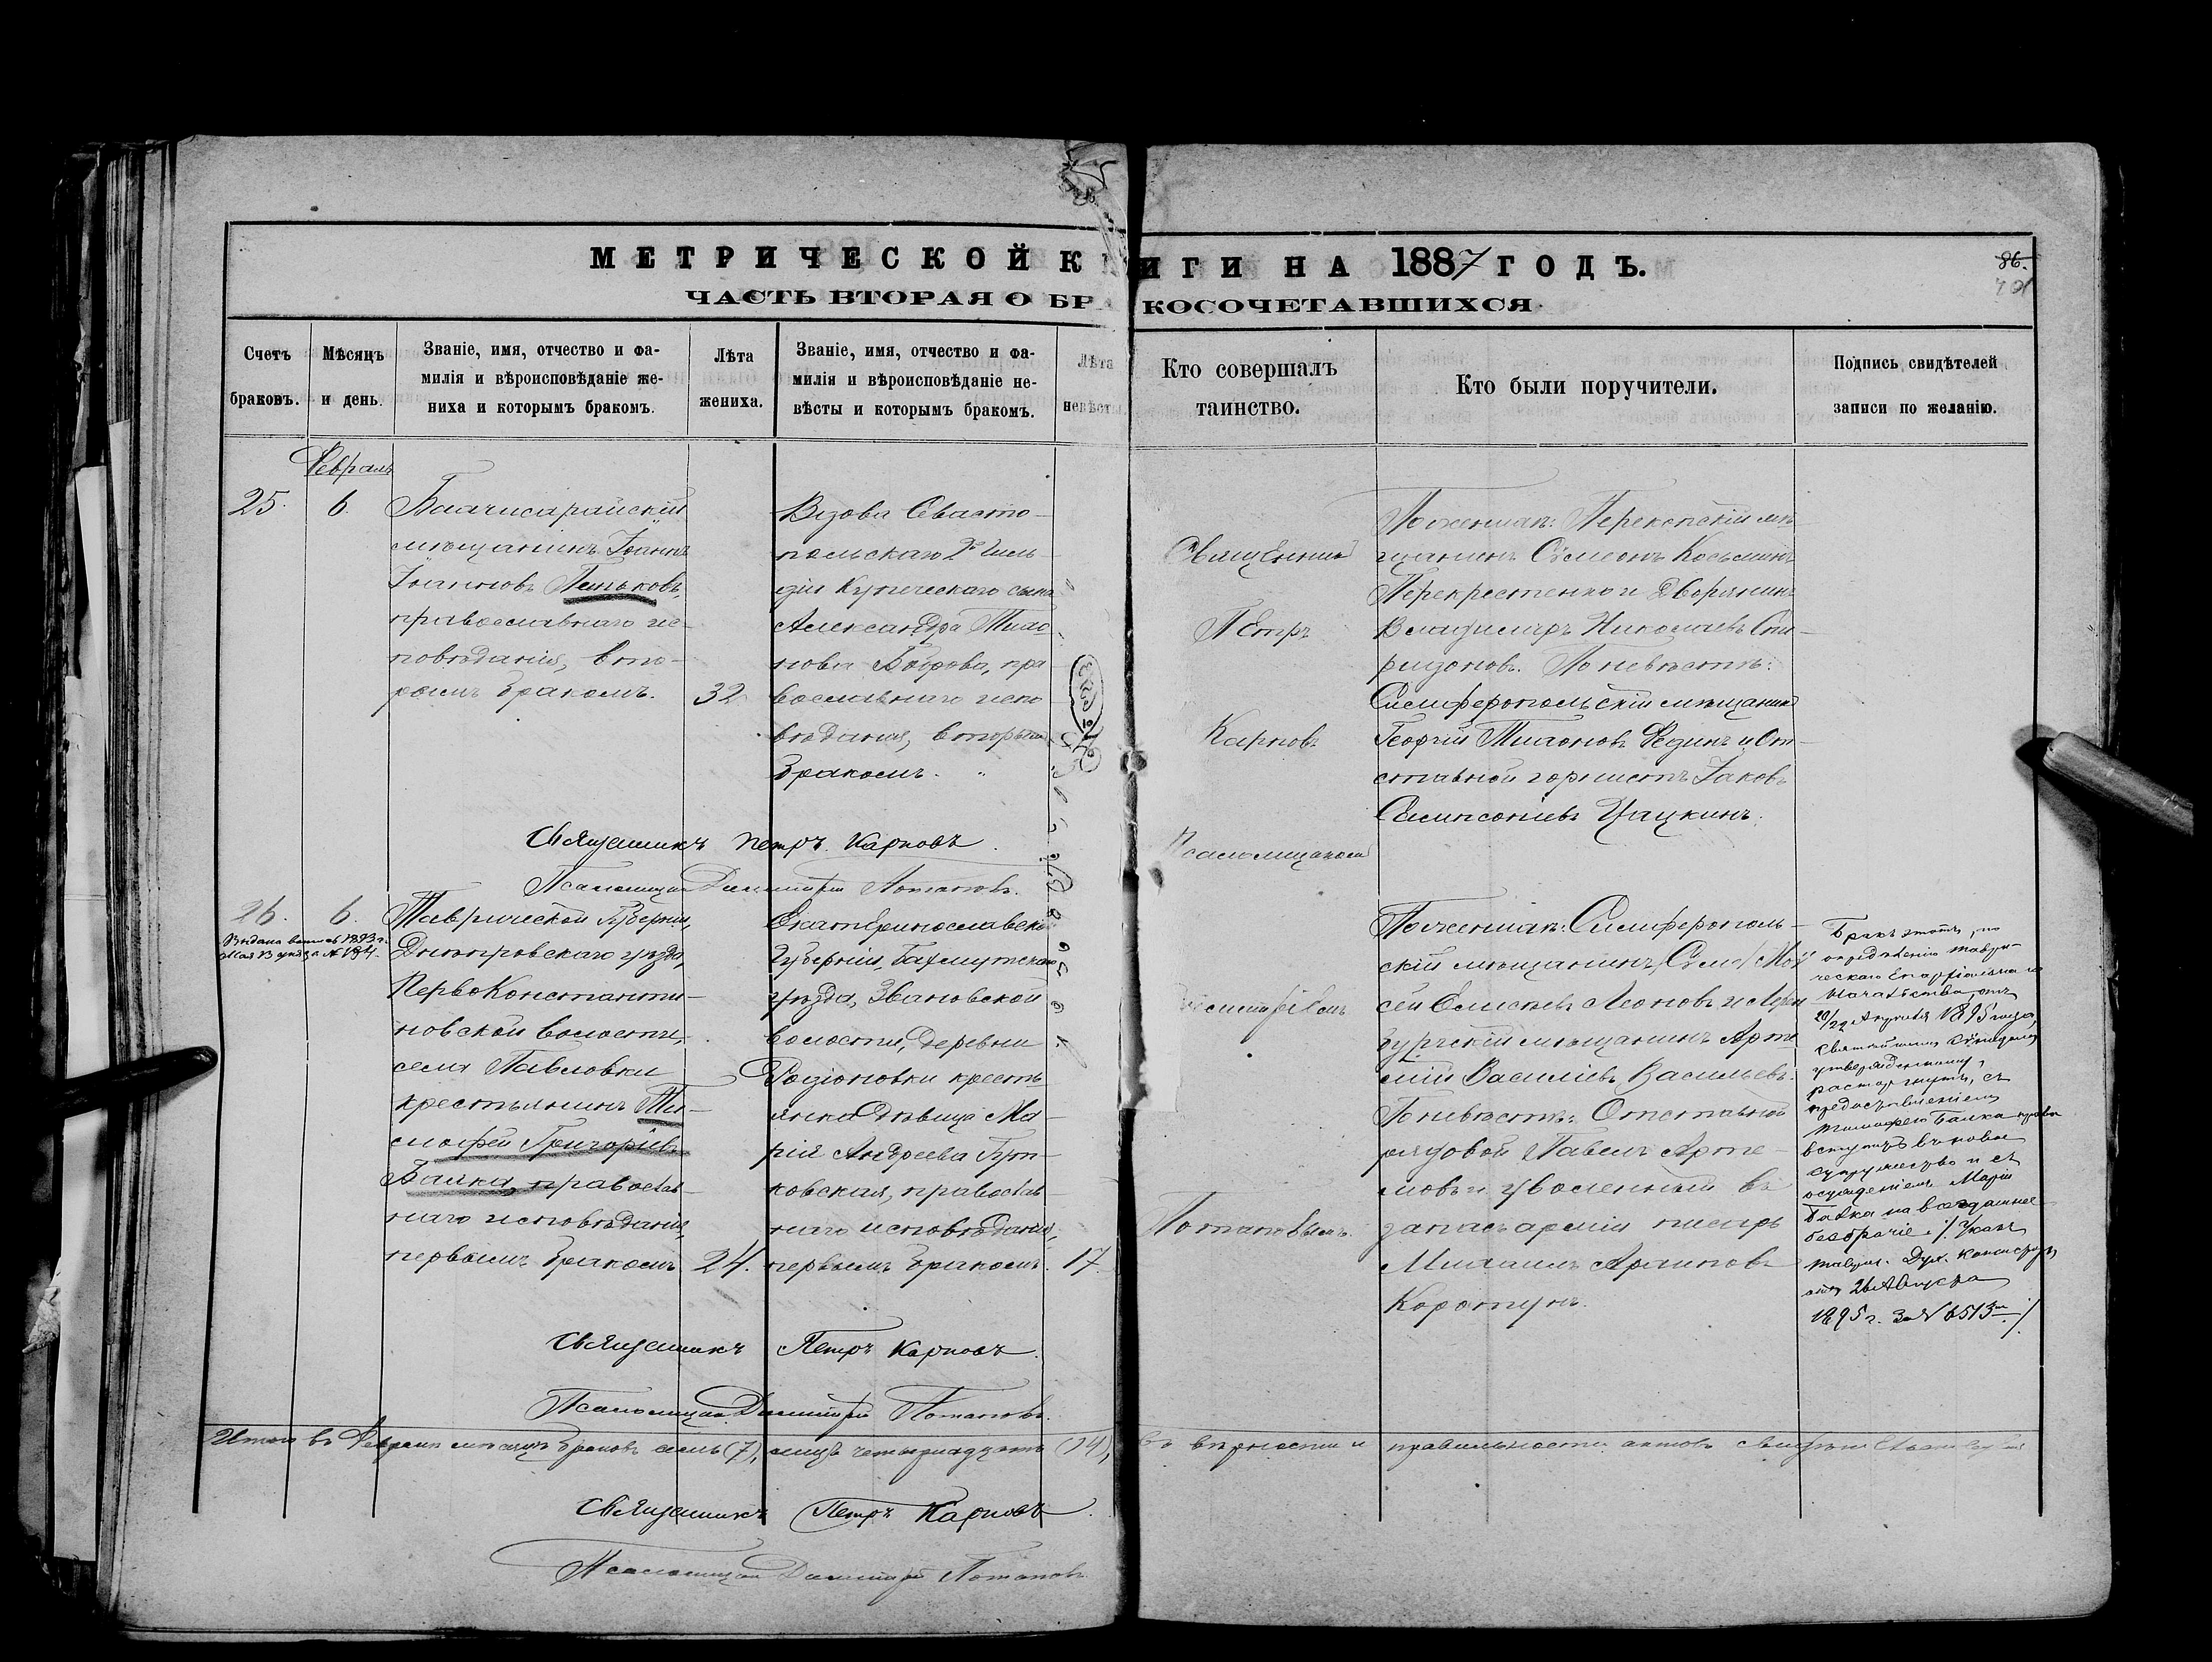 МЕТРИЧЕСКОЙ КНИГИ НА 1887 ГОДЪ.
ЧАСТЬ ВТОРАЯ О БРАКОСОЧЕТАВШИХСЯ
86.
Счетъ
браковъ.
Мѣсяцъ
и день.
Званіе, имя, отчество и фа-
милія и вѣроисповѣданіе же-
ниха и которымъ бракомъ.
Лѣта
жениха.
Званіе, имя, отчество и фа-
милія и вѣроисповѣданіе не-
вѣсты и которымъ бракомъ.
Лѣта
невѣсты.
Кто совершалъ
таинство.
Кто были поручители.
Подпись свидѣтелей
записи по желанію.
Февраль
25.
6.
Бахчисарайскій
мѣщанинъ Іоаннъ
Іоанновъ Пеньковъ,
православнаго ис-
повѣданія, вто-
рымъ бракомъ.
32
Вдова Севасто-
польскаго 2й Гиль-
діи Купеческаго сына
Александра Тихо-
нова Боброва, пра
вославнаго испо
вѣданія, вторымъ
бракомъ.
Священникъ
Петръ
Карповъ
Псаломщикомъ
По женихѣ: Перекопскій мѣ
щанинъ Сѵмеонъ Косьминъ
Перекрестенко и Дворянинъ
Владиміръ Николаевъ Спи-
ридоновъ. По невѣстѣ:
Симферопольскій мѣщанинъ
Георгій Тихоновъ Фединъ и От-
ставной горнистъ Іаковъ
Сампсоніевъ Цацкинъ.
Священникъ Петръ Карповъ.
Псаломщикъ Димитрій Потаповъ.
26.
6.
Выдана выпись 1893 г.
Мая 13 дня за №
Таврической Губерніи,
Днѣпровскаго уѣзда,
ПервоКонстанти-
новской волости,
села Павловки
крестьянинъ Ти-
моѳей Григоріевъ
Балка, православ-
наго исповѣданія,
первымъ бракомъ
24.
Екатеринославской
Губерніи, Бахмутскаго
уѣзда, Звановской
волости, деревни
Родіоновки кресть
янка дѣвица Ма-
рія Андреева Гут-
ковская, православ-
наго исповѣданія,
первымъ бракомъ.
17.
Димитріемъ
Потаповымъ.
По женихѣ: Симферополь-
скій мѣщанинъ
сей Елисѣевъ Леоновъ и
бургскій мѣщанинъ Арте
мій Василіевъ Васильевъ.
По невѣстѣ: Отставной
рядовой Павелъ Арте-
мовъ и уволенный въ
запасъ арміи писарь
Михаилъ
Коротунъ.
Бракъ этотъ, по
опредѣленію Таври-
ческаго Епархіальнаго
Начальства, отъ
20/22 Августа 1895 года,
Святѣйшимъ Сѵнодомъ
утвержденному,
расторгнутъ, съ
предоставленіемъ
Тимоѳею Балка права
вступить въ новое
супружество и съ
осужденіемъ Маріи
Балка на всегдашнее
безбрачіе. Указъ
Таврич. Дух. Консисторіи
отъ 26 Августа
1895 г. за № 6513
Священникъ Петръ Карповъ.
Псаломщикъ Димитрій Потаповъ.
Итого въ Февралѣ мѣсяцѣ браковъ семь (7), лицъ четырнадцать (14),
въ вѣрности и правильности актовъ
Священникъ Петръ Карповъ.
Псаломщикъ Димитрій Потаповъ